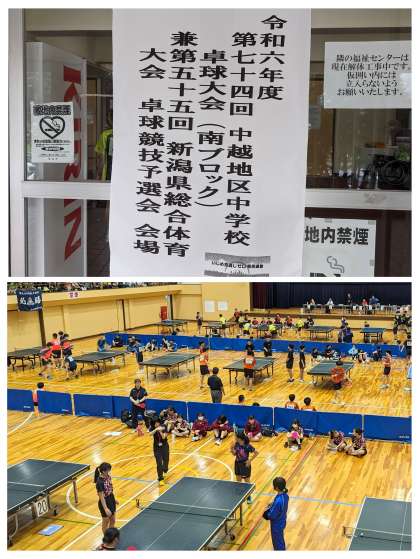 令和六年度
第七十四回 中越地区中学校
卓球大会（南ブロック）
兼第五十五回 新潟県総合体育
大会 卓球競技予選会 会場
敷地内禁煙
隣の福祉センターは
現在解体工事中です。
仮囲い内には
立入らないよう
お願いいたします。
地内禁煙
20